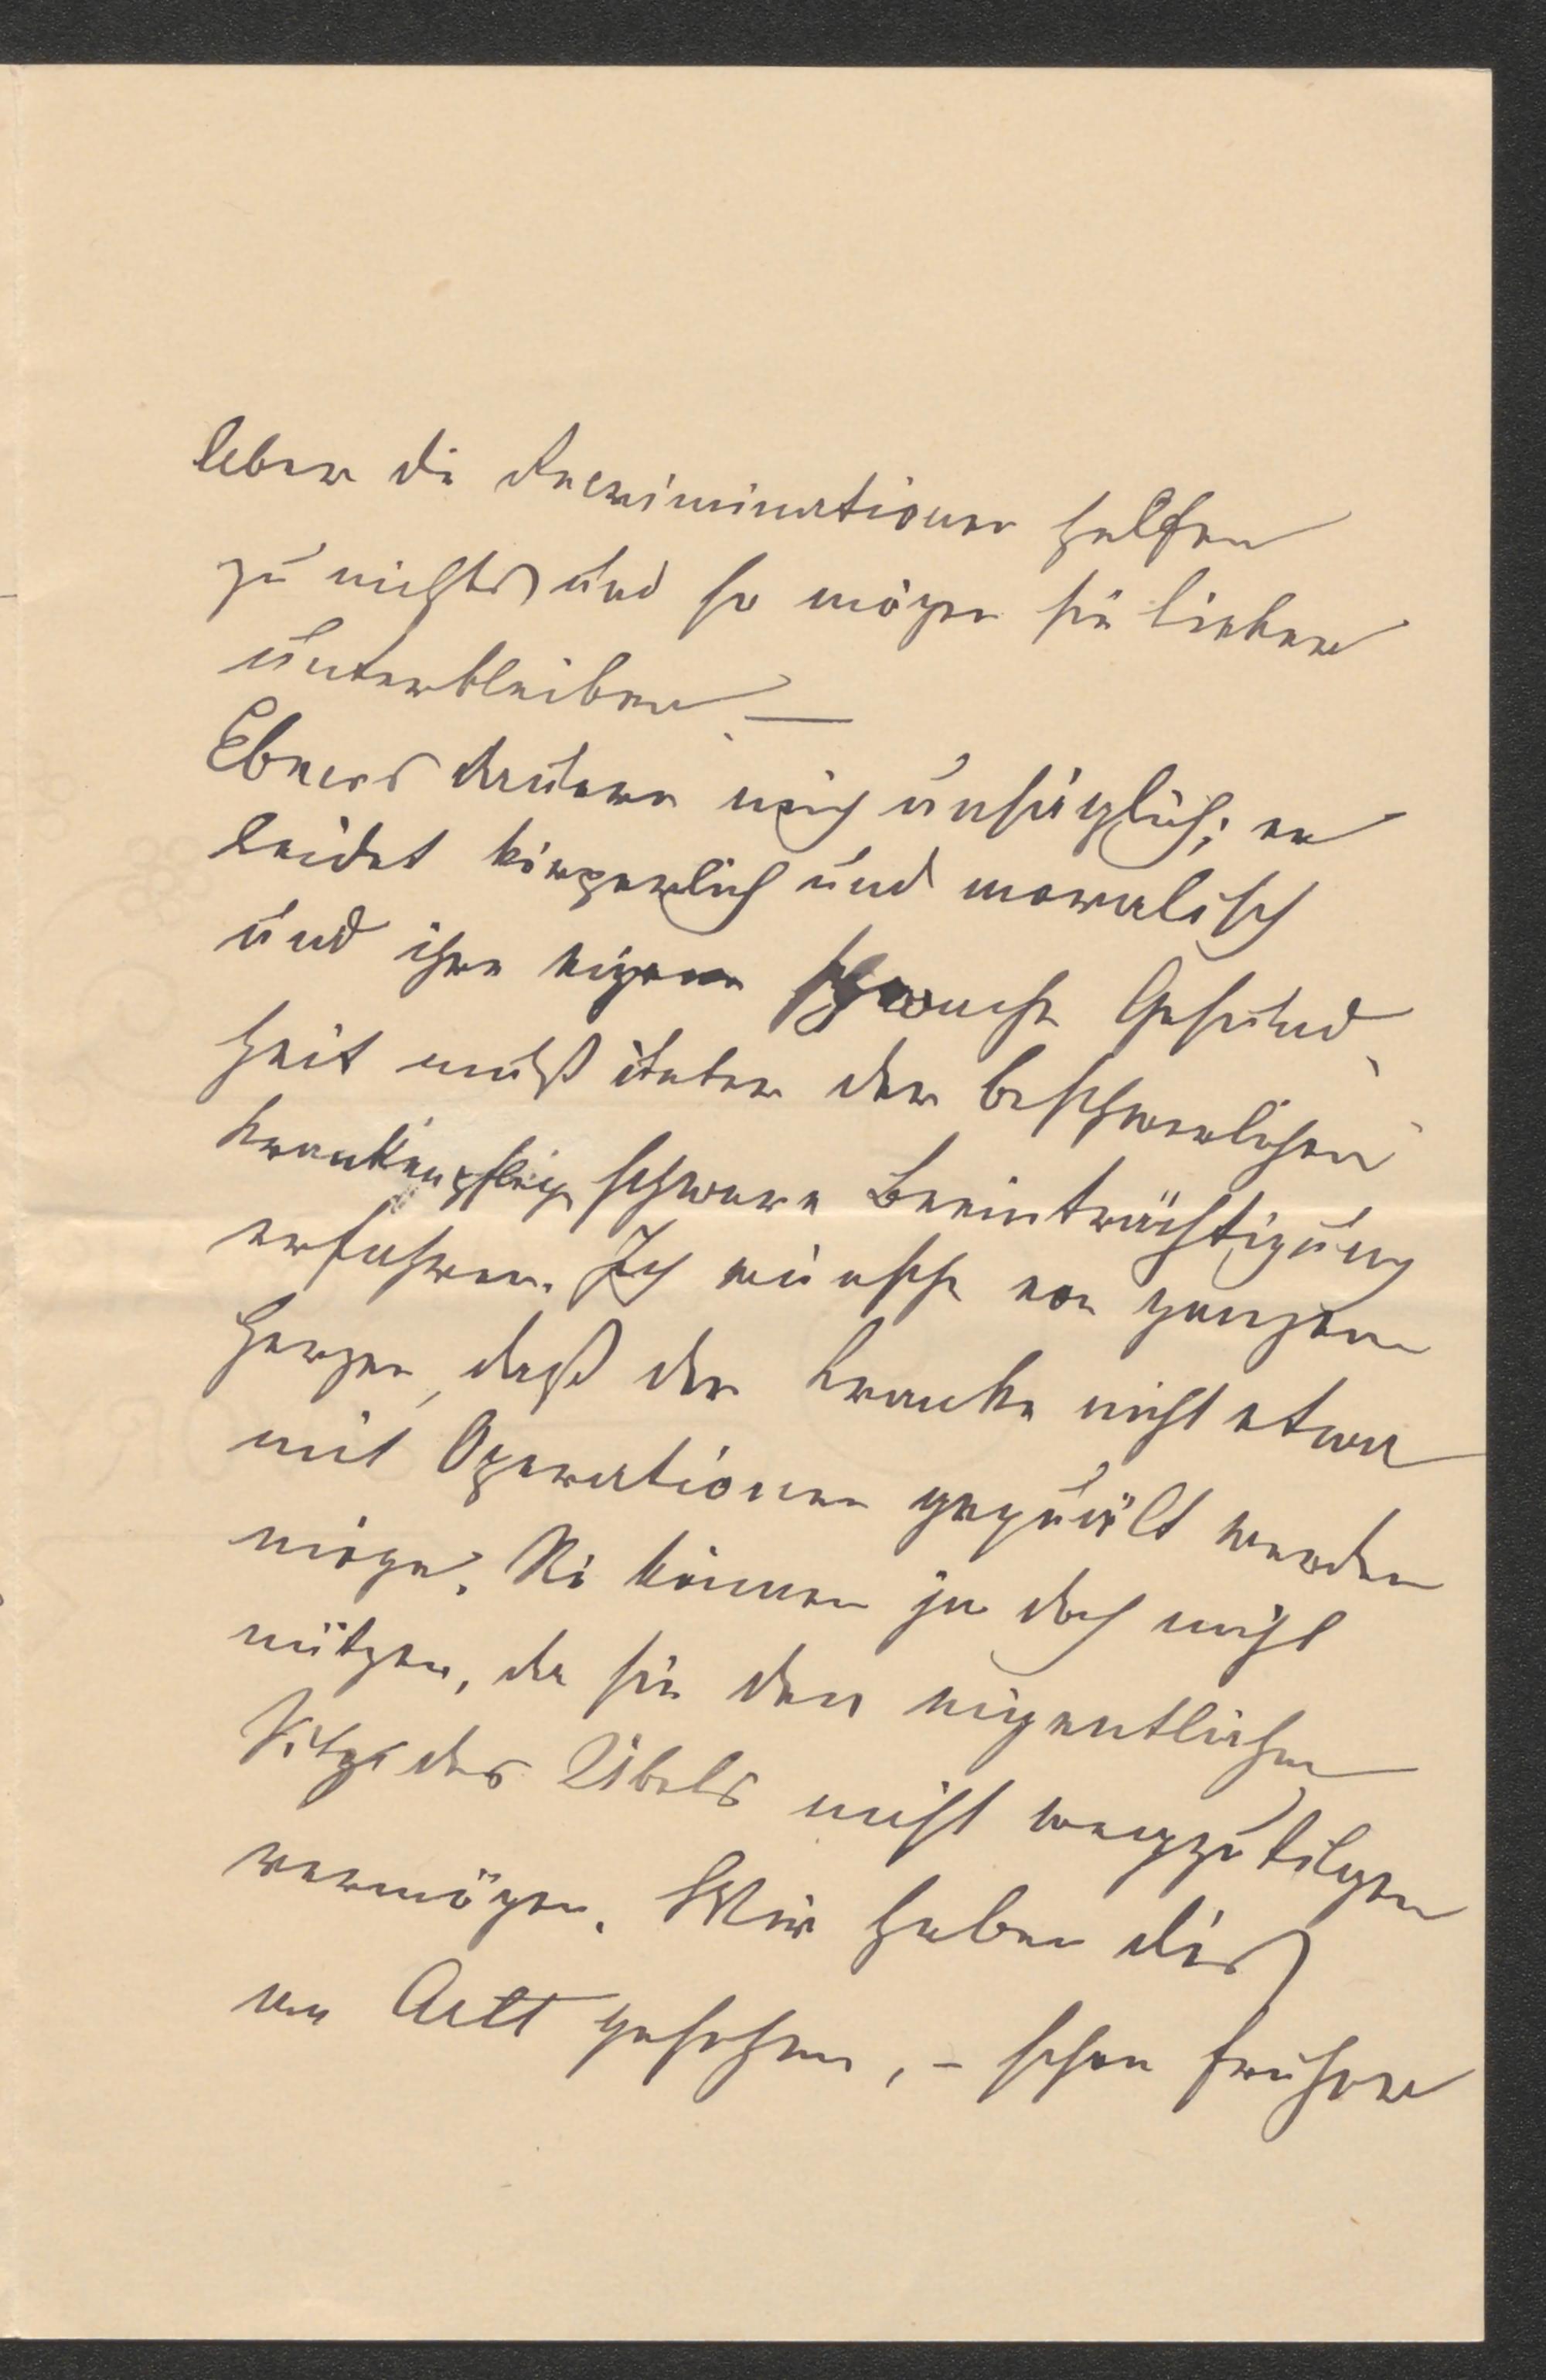 leben die Recriminationen helfen
zu nichts und so mögen sie lieber
unterbleiben. —
Ebners dauern mich unsäglich; er
leidet körperlich und moralisch
und ihre eigene schwache Gesund-
heit muß unter der beschwerlichen
Krankenpflege schwere Beeinträchtigung
erfahren. Ich wünsche von ganzem
Herzen, daß der Kranke nicht etwa
mit Operationen gequält werden
möge. Sie können ja doch nicht
nützen, da sie den eigentlichen
Sitz des Übels nicht wegzutilgen
vermögen. Wir haben dies
an gesehen, – schon früher